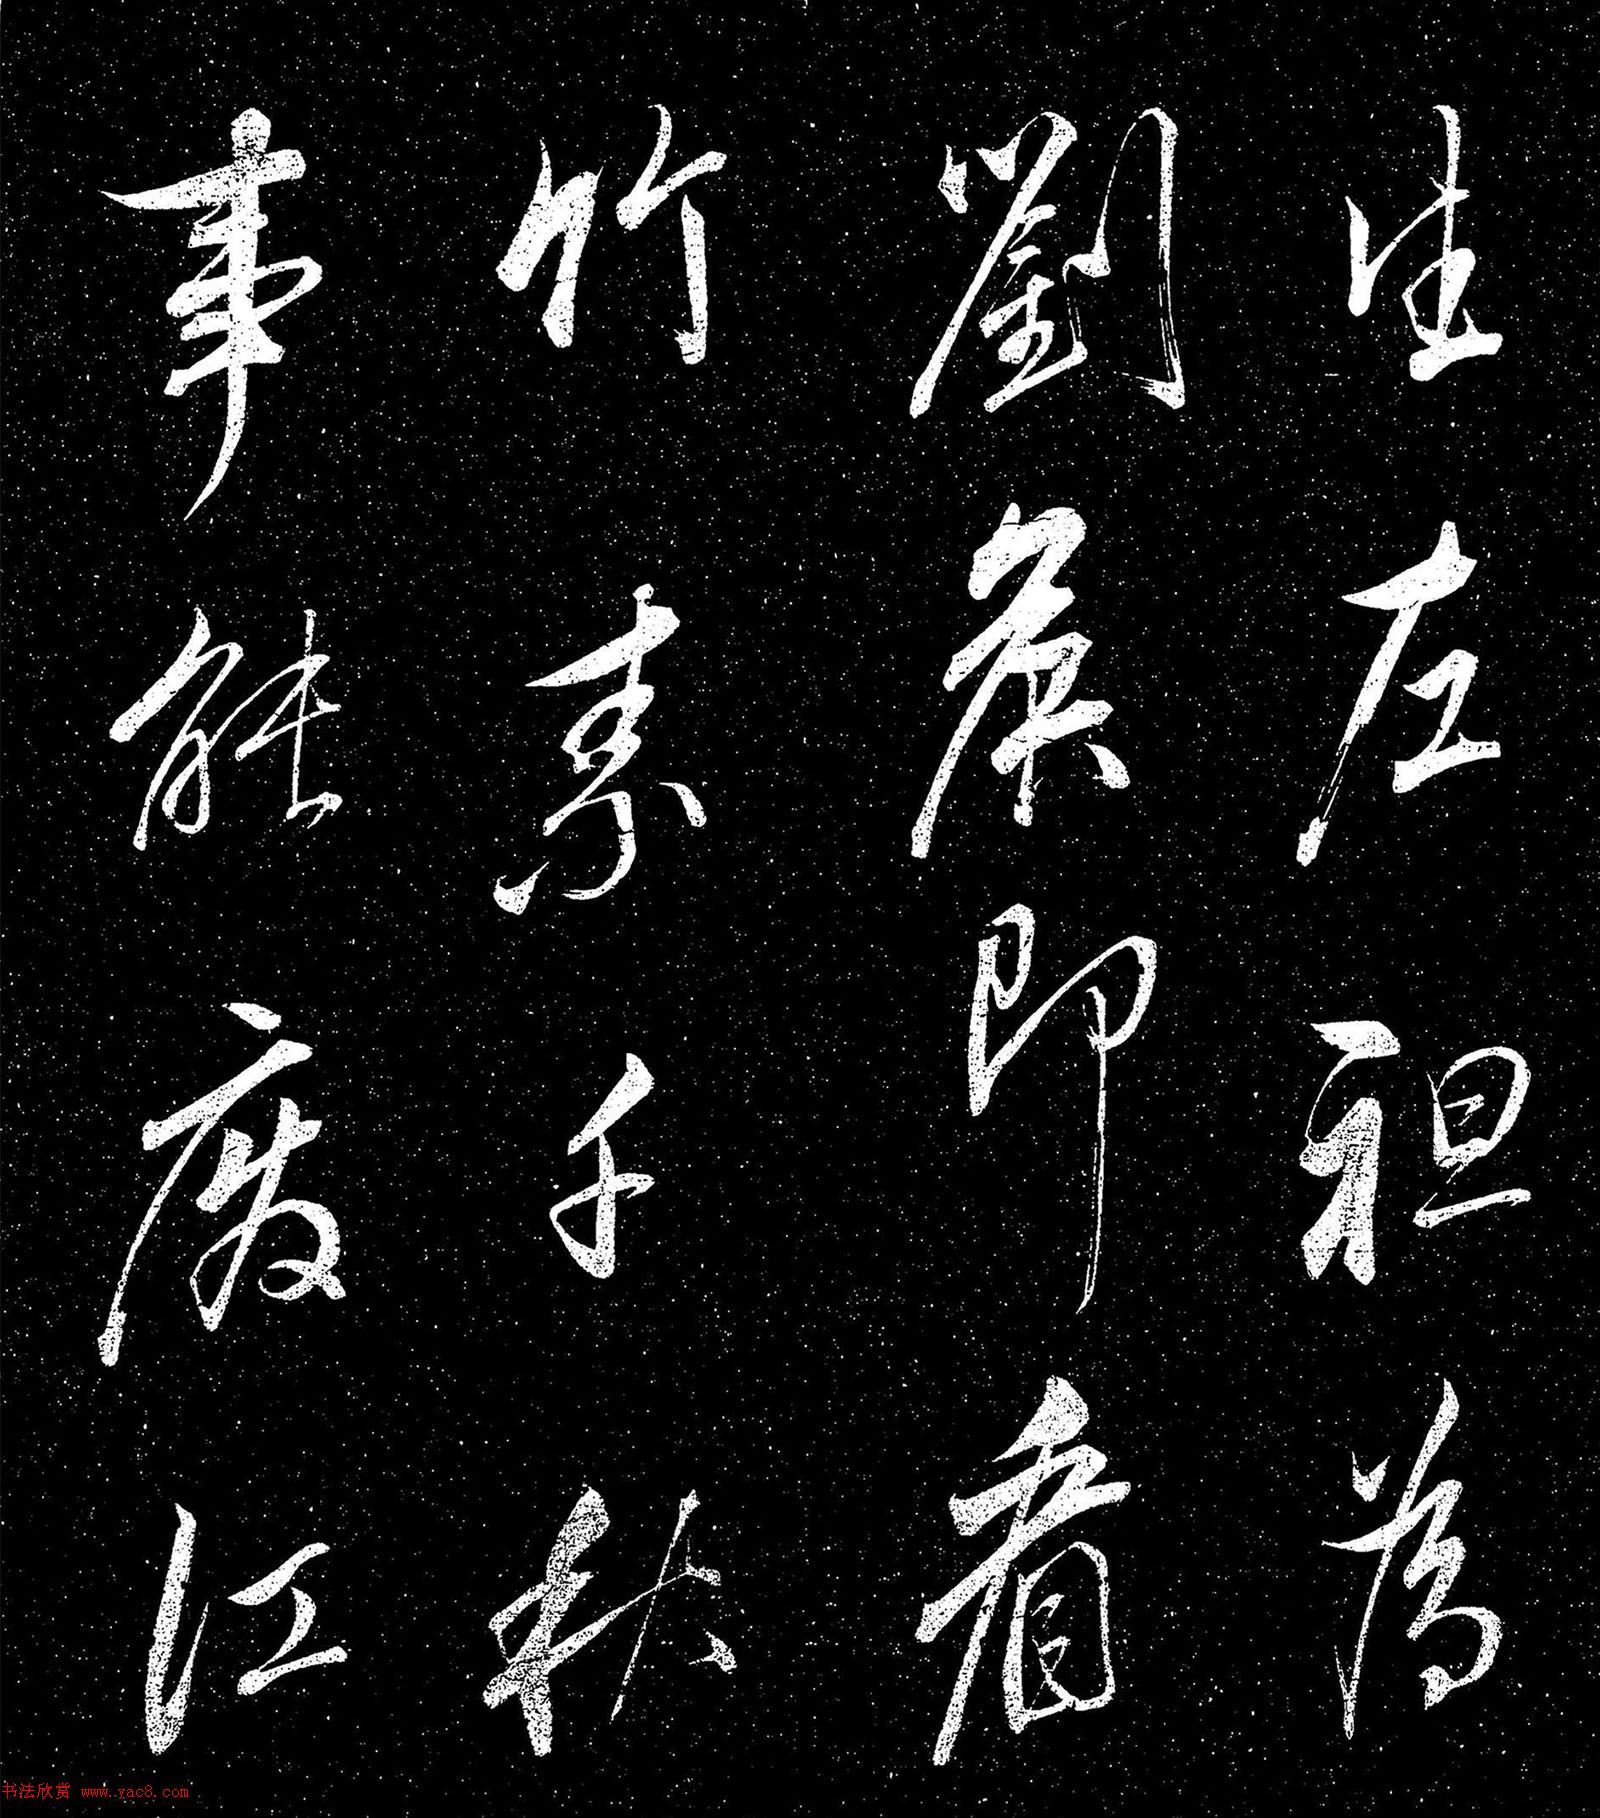 生左袒為
劉矦即看
竹素千秋
事能廢江
书法欣赏 www.yac8.com